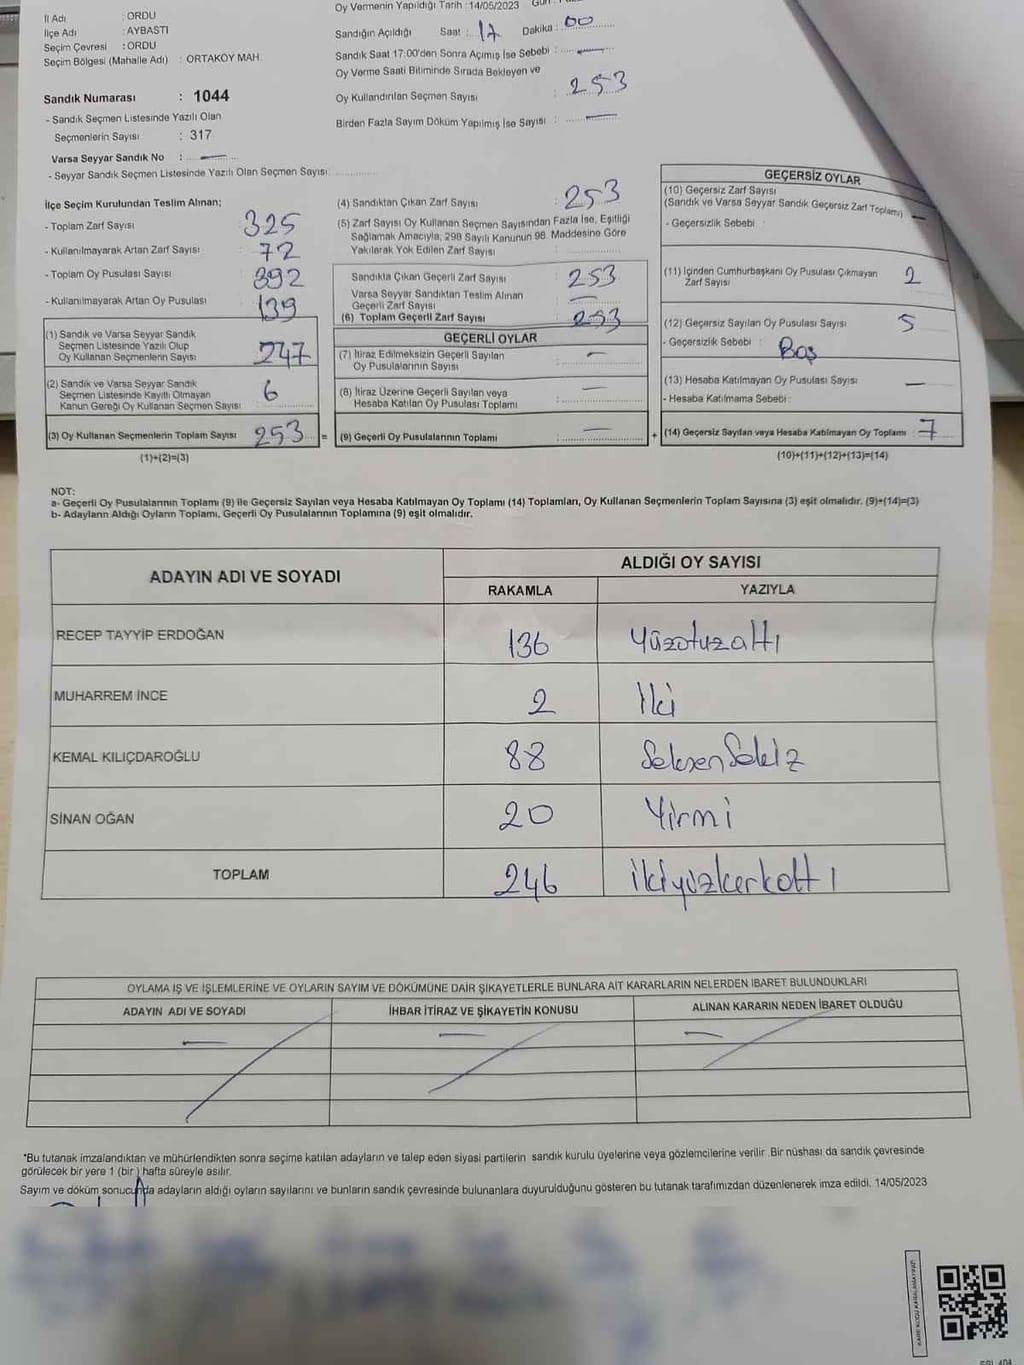 İl Adı : ORDU
İlçe Adı : AYBASTI
Seçim Çevresi : ORDU
Seçim Bölgesi (Mahalle Adı) : ORTAKÖY MAH.
Sandık Numarası : 1044
- Sandık Seçmen Listesinde Yazılı Olan
Seçmenlerin Sayısı : 317
Varsa Seyyar Sandık No : —
- Seyyar Sandık Seçmen Listesinde Yazılı Olan Seçmen Sayısı:
Oy Vermenin Yapıldığı Tarih : 14/05/2023
Sandığın Açıldığı Saat : 17 Dakika : 00
Sandık Saat 17:00'den Sonra Açılmış İse Sebebi : —
Oy Verme Saati Bitiminde Sırada Bekleyen ve
Oy Kullandırılan Seçmen Sayısı : 253
Birden Fazla Sayım Döküm Yapılmış İse Sayısı : —
İlçe Seçim Kurulundan Teslim Alınan;
- Toplam Zarf Sayısı : 325
- Kullanılmayarak Artan Zarf Sayısı : 72
- Toplam Oy Pusulası Sayısı : 392
- Kullanılmayarak Artan Oy Pusulası : 139
(1) Sandık ve Varsa Seyyar Sandık
Seçmen Listesinde Yazılı Olup
Oy Kullanan Seçmenlerin Sayısı : 247
(2) Sandık ve Varsa Seyyar Sandık
Seçmen Listesinde Kayıtlı Olmayan
Kanun Gereği Oy Kullanan Seçmen Sayısı : 6
(3) Oy Kullanan Seçmenlerin Toplam Sayısı 253 =
(1)+(2)=(3)
(4) Sandıktan Çıkan Zarf Sayısı : 253
(5) Zarf Sayısı Oy Kullanan Seçmen Sayısından Fazla İse, Eşitliği
Sağlamak Amacıyla, 298 Sayılı Kanunun 98. Maddesine Göre
Yakılarak Yok Edilen Zarf Sayısı
Sandıkta Çıkan Geçerli Zarf Sayısı : 253
Varsa Seyyar Sandıktan Teslim Alınan
Geçerli Zarf Sayısı —
(6) Toplam Geçerli Zarf Sayısı : 253
GEÇERLİ OYLAR
(7) İtiraz Edilmeksizin Geçerli Sayılan
Oy Pusulalarının Sayısı : —
(8) İtiraz Üzerine Geçerli Sayılan veya
Hesaba Katılan Oy Pusulası Toplamı : —
(9) Geçerli Oy Pusulalarının Toplamı : — +
GEÇERSİZ OYLAR
(10) Geçersiz Zarf Sayısı
(Sandık ve Varsa Seyyar Sandık Geçersiz Zarf Toplamı) —
- Geçersizlik Sebebi :
(11) İçinden Cumhurbaşkanı Oy Pusulası Çıkmayan
Zarf Sayısı 2
(12) Geçersiz Sayılan Oy Pusulası Sayısı : 5
- Geçersizlik Sebebi : Boş
(13) Hesaba Katılmayan Oy Pusulası Sayısı : —
- Hesaba Katılmama Sebebi :
(14) Geçersiz Sayılan veya Hesaba Katılmayan Oy Toplamı : 7
(10)+(11)+(12)+(13)=(14)
NOT:
a- Geçerli Oy Pusulalarının Toplamı (9) ile Geçersiz Sayılan veya Hesaba Katılmayan Oy Toplamı (14) Toplamları, Oy Kullanan Seçmenlerin Toplam Sayısına (3) eşit olmalıdır. (9)+(14)=(3)
b- Adayların Aldığı Oyların Toplamı, Geçerli Oy Pusulalarının Toplamına (9) eşit olmalıdır.
ADAYIN ADI VE SOYADI ALDIĞI OY SAYISI
RAKAMLA YAZIYLA
RECEP TAYYİP ERDOĞAN 136 Yüzotuzaltı
MUHARREM İNCE 2 İki
KEMAL KILIÇDAROĞLU 88 SeksenSekiz
SİNAN OĞAN 20 Yirmi
TOPLAM 246 ikiyüzkırkaltı
OYLAMA İŞ VE İŞLEMLERİNE VE OYLARIN SAYIM VE DÖKÜMÜNE DAİR ŞİKAYETLERLE BUNLARA AİT KARARLARIN NELERDEN İBARET BULUNDUKLARI
ADAYIN ADI VE SOYADI İHBAR İTİRAZ VE ŞİKAYETİN KONUSU ALINAN KARARIN NEDEN İBARET OLDUĞU
— — —
"Bu tutanak imzalandıktan ve mühürlendikten sonra seçime katılan adayların ve talep eden siyasi partilerin sandık kurulu üyelerine veya gözlemcilerine verilir. Bir nüshası da sandık çevresinde
görülecek bir yere 1 (bir ) hafta süreyle asılır.
Sayım ve döküm sonucunda adayların aldığı oyların sayılarını ve bunların sandık çevresinde bulunanlara duyurulduğunu gösteren bu tutanak tarafımızdan düzenlenerek imza edildi. 14/05/2023